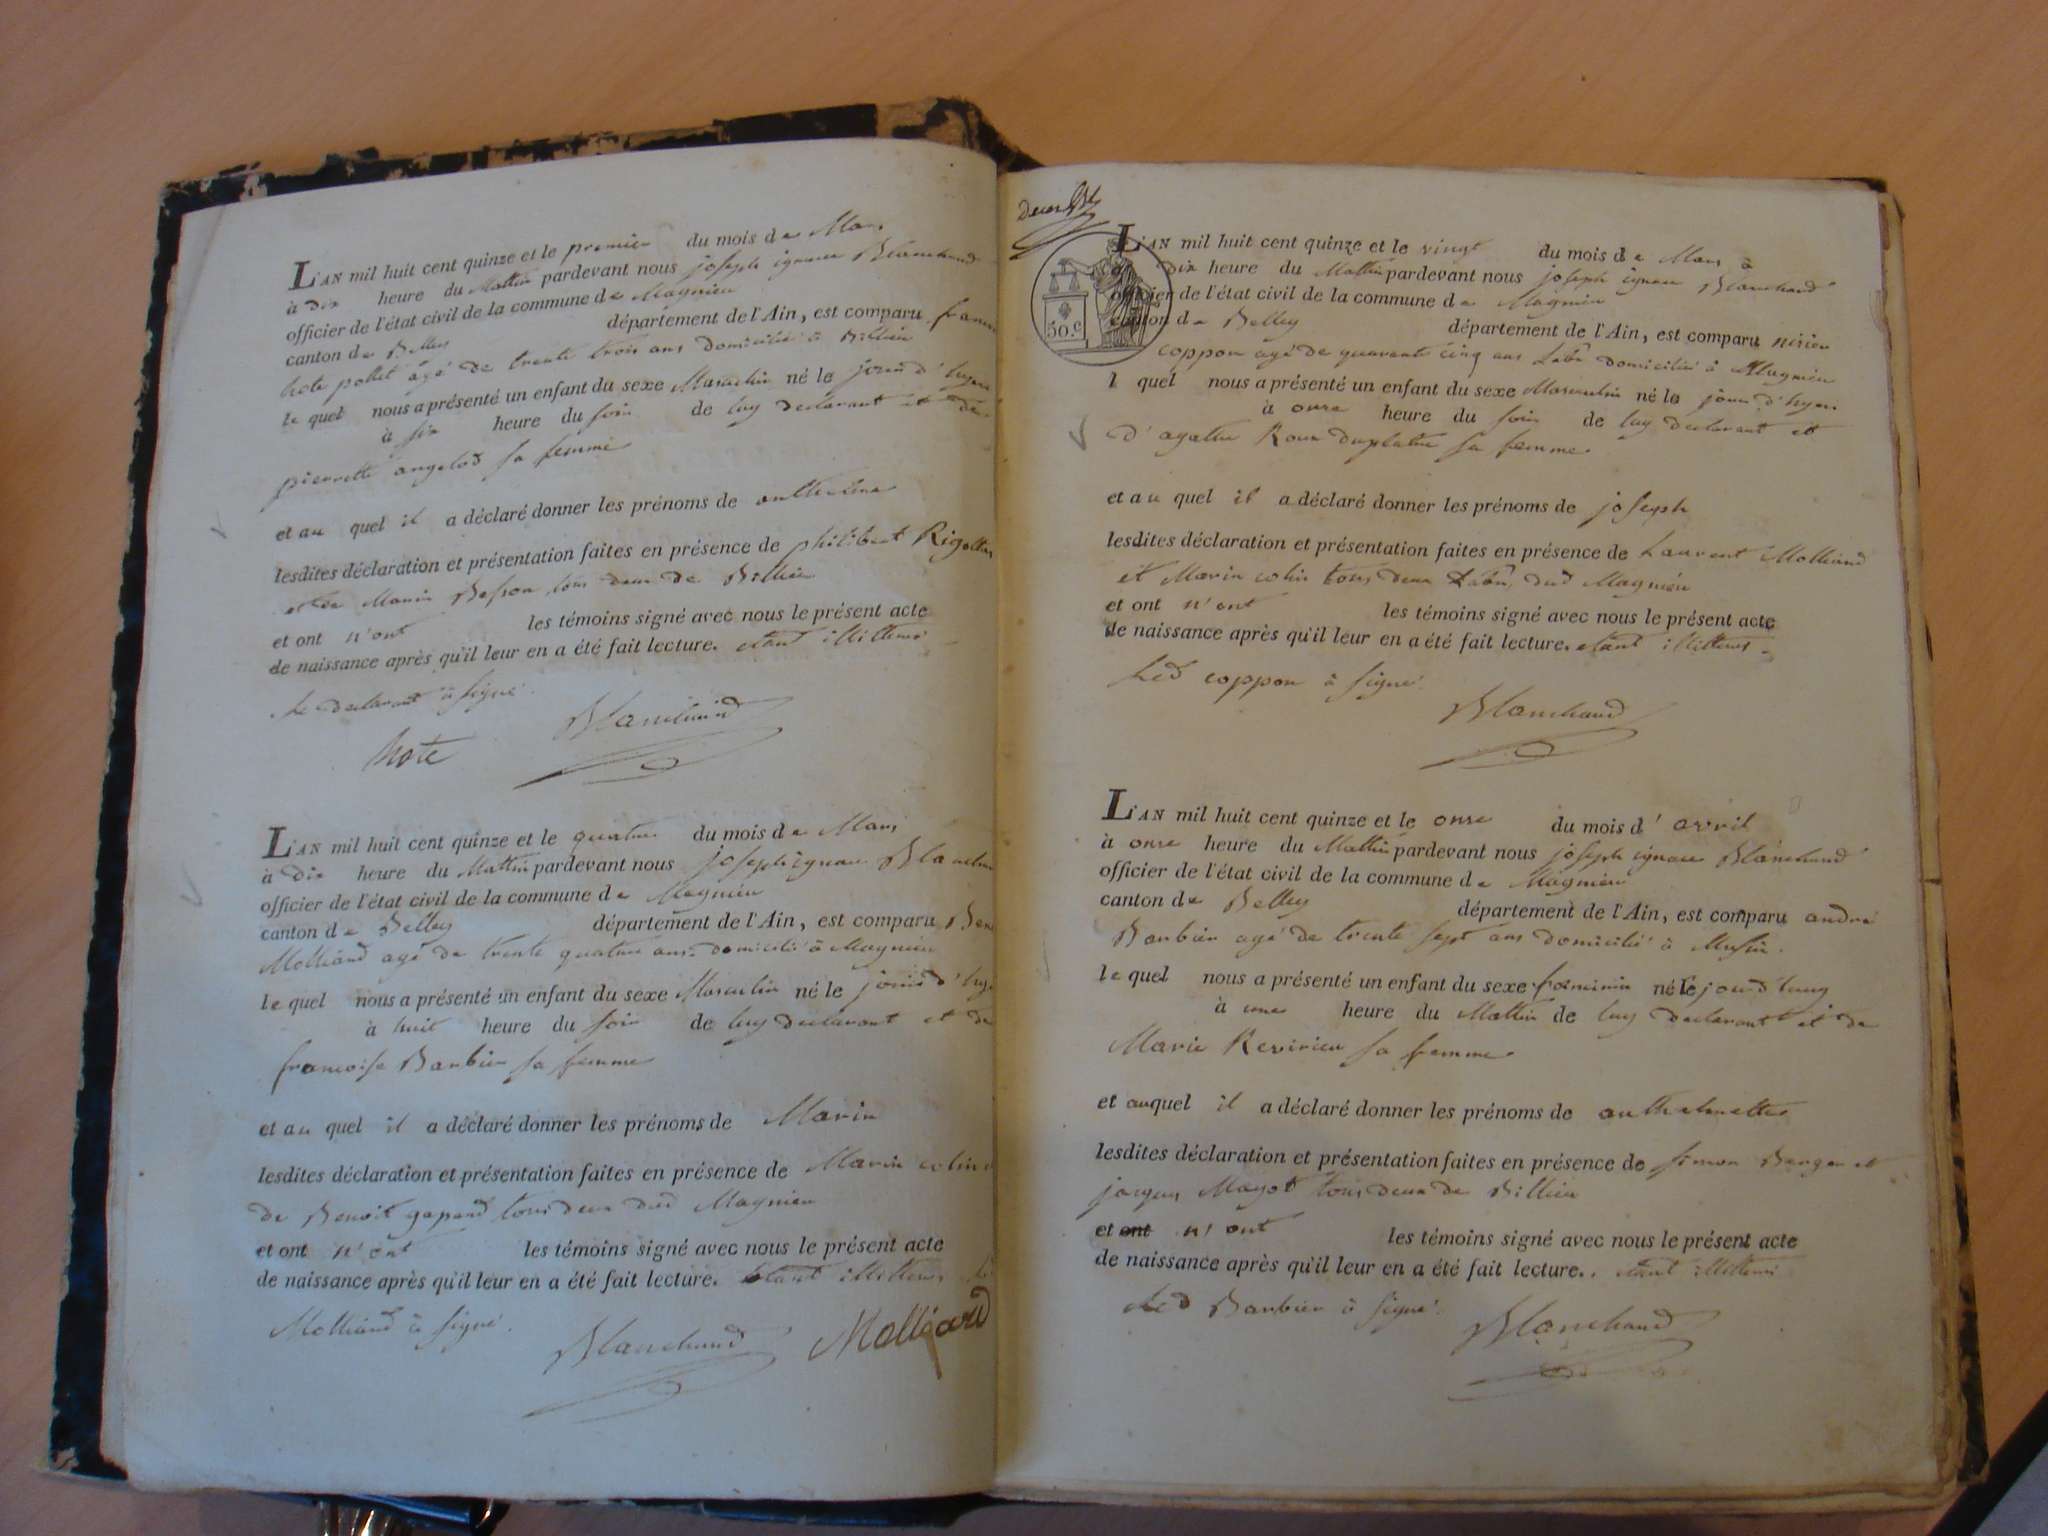 L'AN mil huit cent quinze et le premier du mois de Mars
à dix heure du Mattin pardevant nous joseph ignace Blanchand
officier de l'état civil de la commune de Magnieu
canton de Belley département de l'Ain, est comparu
hote pollet âgé de trente trois ans domicilié à Billieu
le quel nous a présenté un enfant du sexe Masculin né le jour d'hyer
à six heure du soir de luy declarant et de
pierrette angelod sa femme
et au quel il a déclaré donner les prénoms de anthelme
lesdites déclaration et présentation faites en présence de philibert Rigollet
Marin Besson tous deux de Billieu
et ont n'ont les témoins signé avec nous le présent acte
de naissance après qu'il leur en a été fait lecture. etant illitterés
Le declarant à signé.
hote Blanchand
L'AN mil huit cent quinze et le quatre du mois de Mars
à dix heure du Mattin pardevant nous joseph ignace
officier de l'état civil de la commune de Magnieu
canton de Belley département de l'Ain, est comparu
Molliand agé de trente quatre ans domicilié à Magnieu
le quel nous a présenté un enfant du sexe Masculin né le jour d'hyer
à huit heure du soir de luy declarant et de
francoise Barbier sa femme
et au quel il a déclaré donner les prénoms de Marin
lesdites déclaration et présentation faites en présence de Marin colin
de Benoit gapand tous deux dud Magnieu
et ont n'ont les témoins signé avec nous le présent acte
de naissance après qu'il leur en a été fait lecture. etant illitterés
Molliand à signé.
Blanchand Molliand
L'AN mil huit cent quinze et le vingt du mois de Mars à
dix heure du Mattin pardevant nous joseph ignace Blanchand
50.c officier de l'état civil de la commune de Magnieu
canton de Belley département de l'Ain, est comparu
coppon agé de quarente cinq ans Labr domicilié à Magnieu
l quel nous a présenté un enfant du sexe Masculin né le jour d'hyer
à onze heure du soir de luy declarant et
d'agathe Roux duplatre sa femme
et au quel il a déclaré donner les prénoms de joseph
lesdites déclaration et présentation faites en présence de Laurent Molliand
et Marin colin tous deux Labr dud Magnieu
et ont n'ont les témoins signé avec nous le présent acte
de naissance après qu'il leur en a été fait lecture. etant illitterés
Led coppon à signé
Blanchand
L'AN mil huit cent quinze et le onze du mois d'avril
à onze heure du Mattin pardevant nous joseph ignace Blanchand
officier de l'état civil de la commune de Magnieu
canton de Belley département de l'Ain, est comparu andré
Barbier agé de trente sept ans domicilié à Musin.
le quel nous a présenté un enfant du sexe feminin né le jourd'huy
à une heure du Mattin de luy declarant et de
Marie Revirieu sa femme
et auquel il a déclaré donner les prénoms de anthelmette
lesdites déclaration et présentation faites en présence de simon Berger et
jacques Mayot tous deux de Billieu
et ont n'ont les témoins signé avec nous le présent acte
de naissance après qu'il leur en a été fait lecture. etant illitterés
Led Barbier à signé.
Blanchand